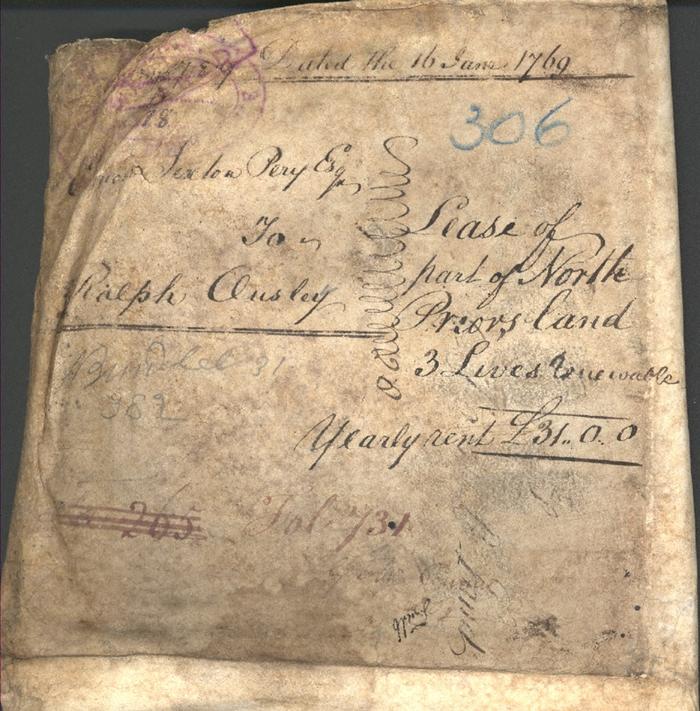 Dated the 16 June 1769
306
Sexton Pery Esqr
To
Ralph Ousley
Lease of
part of North
Priors Land
3 Lives renewable
Yearly rent £31..0.0
Bundle 31
382
265
Fol. 731